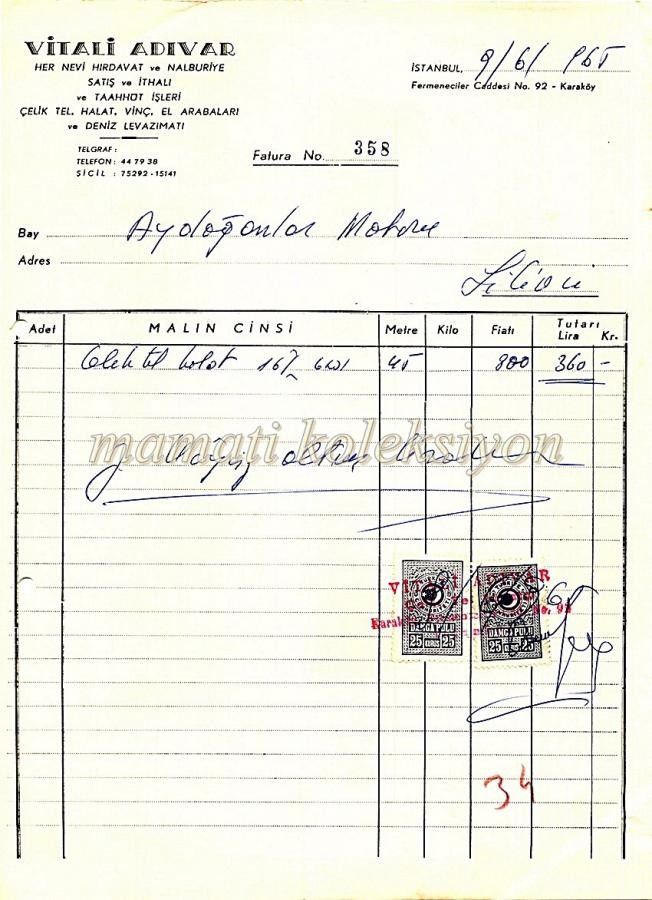 VİTALİ ADIVAR
HER NEVİ HIRDAVAT ve NALBURİYE
SATIŞ ve İTHALI
ve TAAHHÜT İŞLERİ
ÇELİK TEL, HALAT, VİNÇ, EL ARABALARI
ve DENİZ LEVAZIMATI
TELGRAF :
TELEFON : 44 79 38
SİCİL : 75292 - 15141
İSTANBUL, 9/6/965
Fermeneciler Caddesi No. 92 - Karaköy
Fatura No. 358
Bay Aydoğanlar Motoru
Adres
Adet MALIN CİNSİ Metre Kilo Fiatı Tutarı Lira Kr.
halat 16 45 800 360 -
mamati koleksiyon
VİTALİ ADIVAR
No. 92
DAMGA PULU DAMGA PULU
25 25 25 25
34